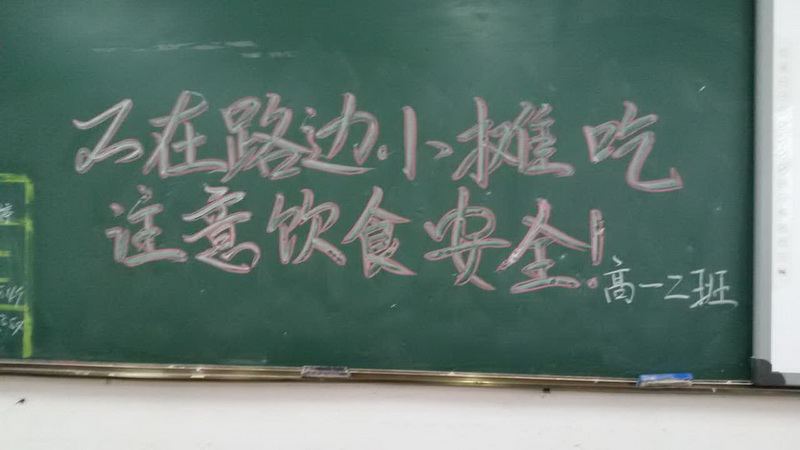 不在路边小摊吃
注意饮食安全!
高一二班